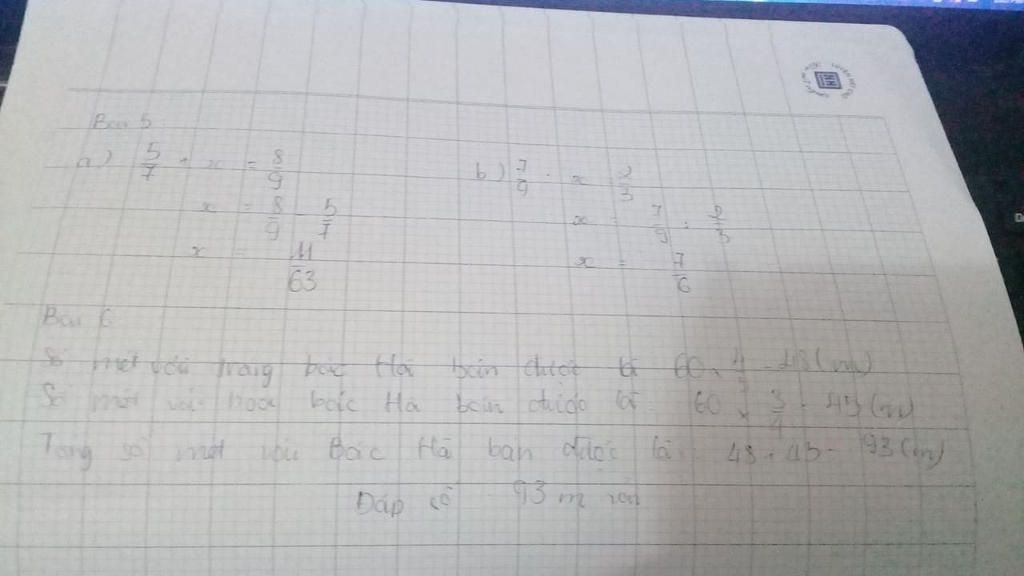 Bài 5
a) 5/7 + x = 8/9 b) 7/9 : x = 2/3
x = 8/9 - 5/7 x = 7/9 : 2/3
x = 11/63 x = 7/6
Bài 6
Số mét vải trắng bác Hà bán được là 60 x 4/5 = 48 (m)
Số mét vải hoa bác Hà bán được là 60 x 3/4 = 45 (m)
Tổng số mét vải Bác Hà bán được là: 48 + 45 = 93 (m)
Đáp số 93 m vải